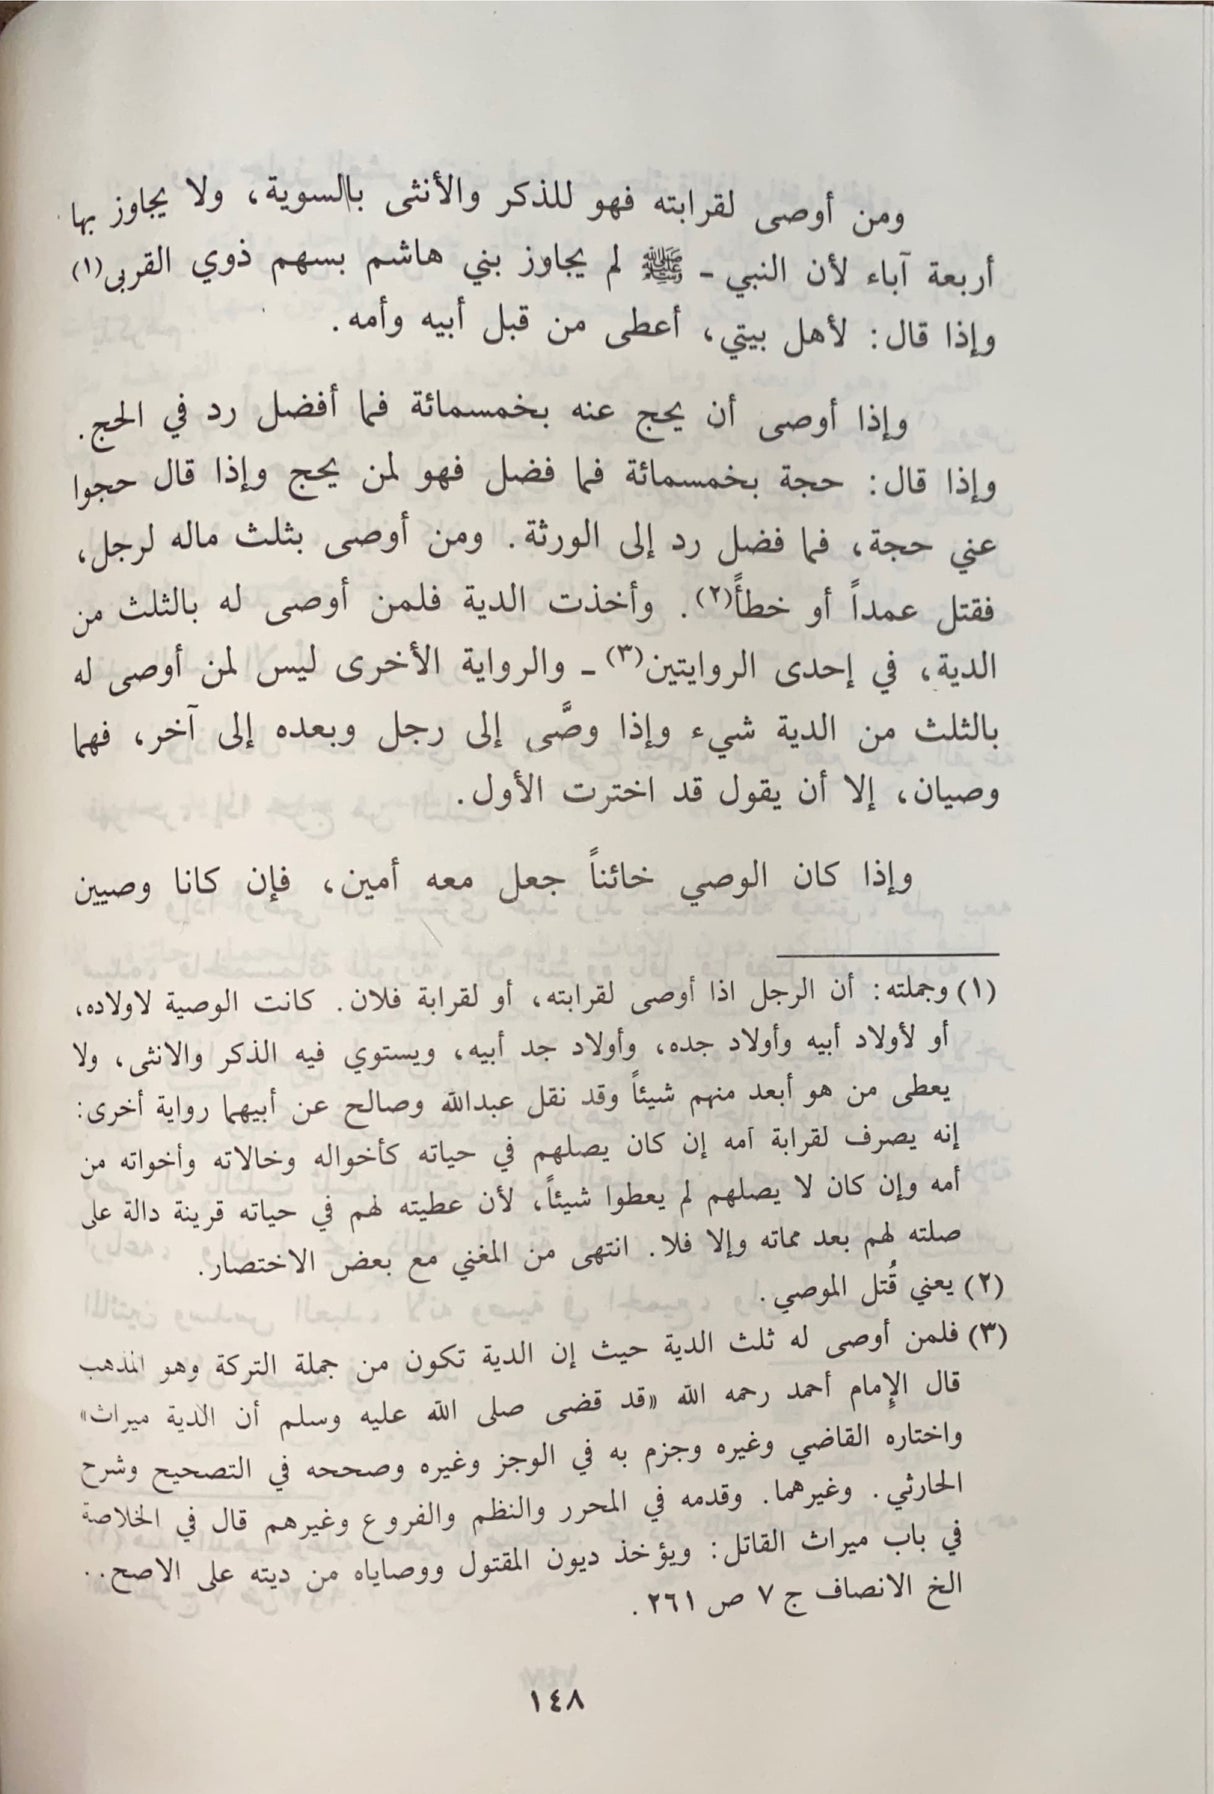 ومن أوصى لقرابته فهو للذكر والأنثى بالسوية، ولا يجاوز بها
أربعة آباء لأن النبي - ﷺ لم يجاوز بني هاشم بسهم ذوي القربى(١)
وإذا قال: لأهل بيتي، أعطى من قبل أبيه وأمه.
وإذا أوصى أن يحج عنه بخمسمائة فما أفضل رد في الحج.
وإذا قال: حجة بخمسمائة فما فضل فهو لمن يحج وإذا قال حجوا
عني حجة، فما فضل رد إلى الورثة. ومن أوصى بثلث ماله لرجل،
فقتل عمداً أو خطأً(٢). وأخذت الدية فلمن أوصى له بالثلث من
الدية، في إحدى الروايتين(٣) - والرواية الأخرى ليس لمن أوصى له
بالثلث من الدية شيء وإذا وصَّى إلى رجل وبعده إلى آخر، فهما
وصيان، إلا أن يقول قد اخترت الأول.
وإذا كان الوصي خائناً جعل معه أمين، فإن كانا وصيين
(١) وجملته: أن الرجل اذا أوصى لقرابته، أو لقرابة فلان. كانت الوصية لاولاده،
أو لأولاد أبيه وأولاد جده، وأولاد جد أبيه، ويستوي فيه الذكر والانثى، ولا
يعطى من هو أبعد منهم شيئاً وقد نقل عبدالله وصالح عن أبيهما رواية أخرى:
إنه يصرف لقرابة أمه إن كان يصلهم في حياته كأخواله وخالاته وأخواته من
أمه وإن كان لا يصلهم لم يعطوا شيئاً، لأن عطيته لهم في حياته قرينة دالة على
صلته لهم بعد مماته وإلا فلا. انتهى من المغني مع بعض الاختصار.
(٢) يعني قُتل الموصي.
(٣) فلمن أوصى له ثلث الدية حيث إن الدية تكون من جملة التركة وهو المذهب
قال الإمام أحمد رحمه الله «قد قضى صلى الله عليه وسلم أن الدية ميراث»
واختاره القاضي وغيره وجزم به في الوجز وغيره وصححه في التصحيح وشرح
الحارثي. وغيرهما. وقدمه في المحرر والنظم والفروع وغيرهم قال في الخلاصة
في باب ميراث القاتل: ويؤخذ ديون المقتول ووصاياه من ديته على الاصح..
الخ الانصاف ج ٧ ص ٢٦١.
١٤٨